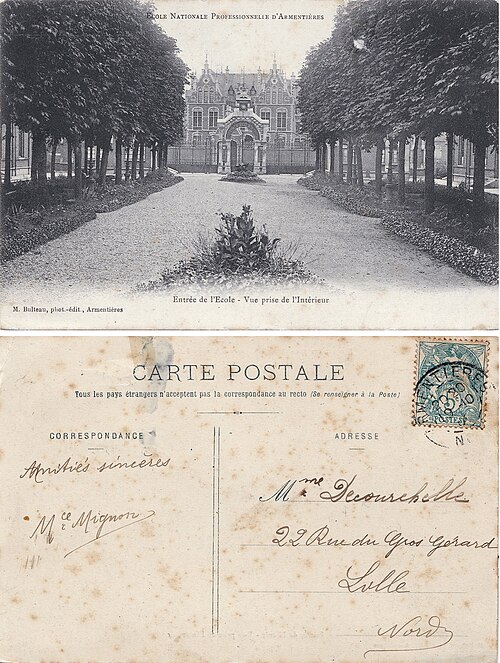 École Nationale Professionnelle d'Armentières
Entrée de l'Ecole - Vue prise de l'Intérieur
M. Bulteau, phot.-édit., Armentières
CARTE POSTALE
Tous les pays étrangers n'acceptent pas la correspondance au recto (Se renseigner à la Poste)
CORRESPONDANCE
ADRESSE
Amitiés sincères
Mce Mignon
Mme Decourchelle
22 Rue du Gros Gérard
Lille
Nord